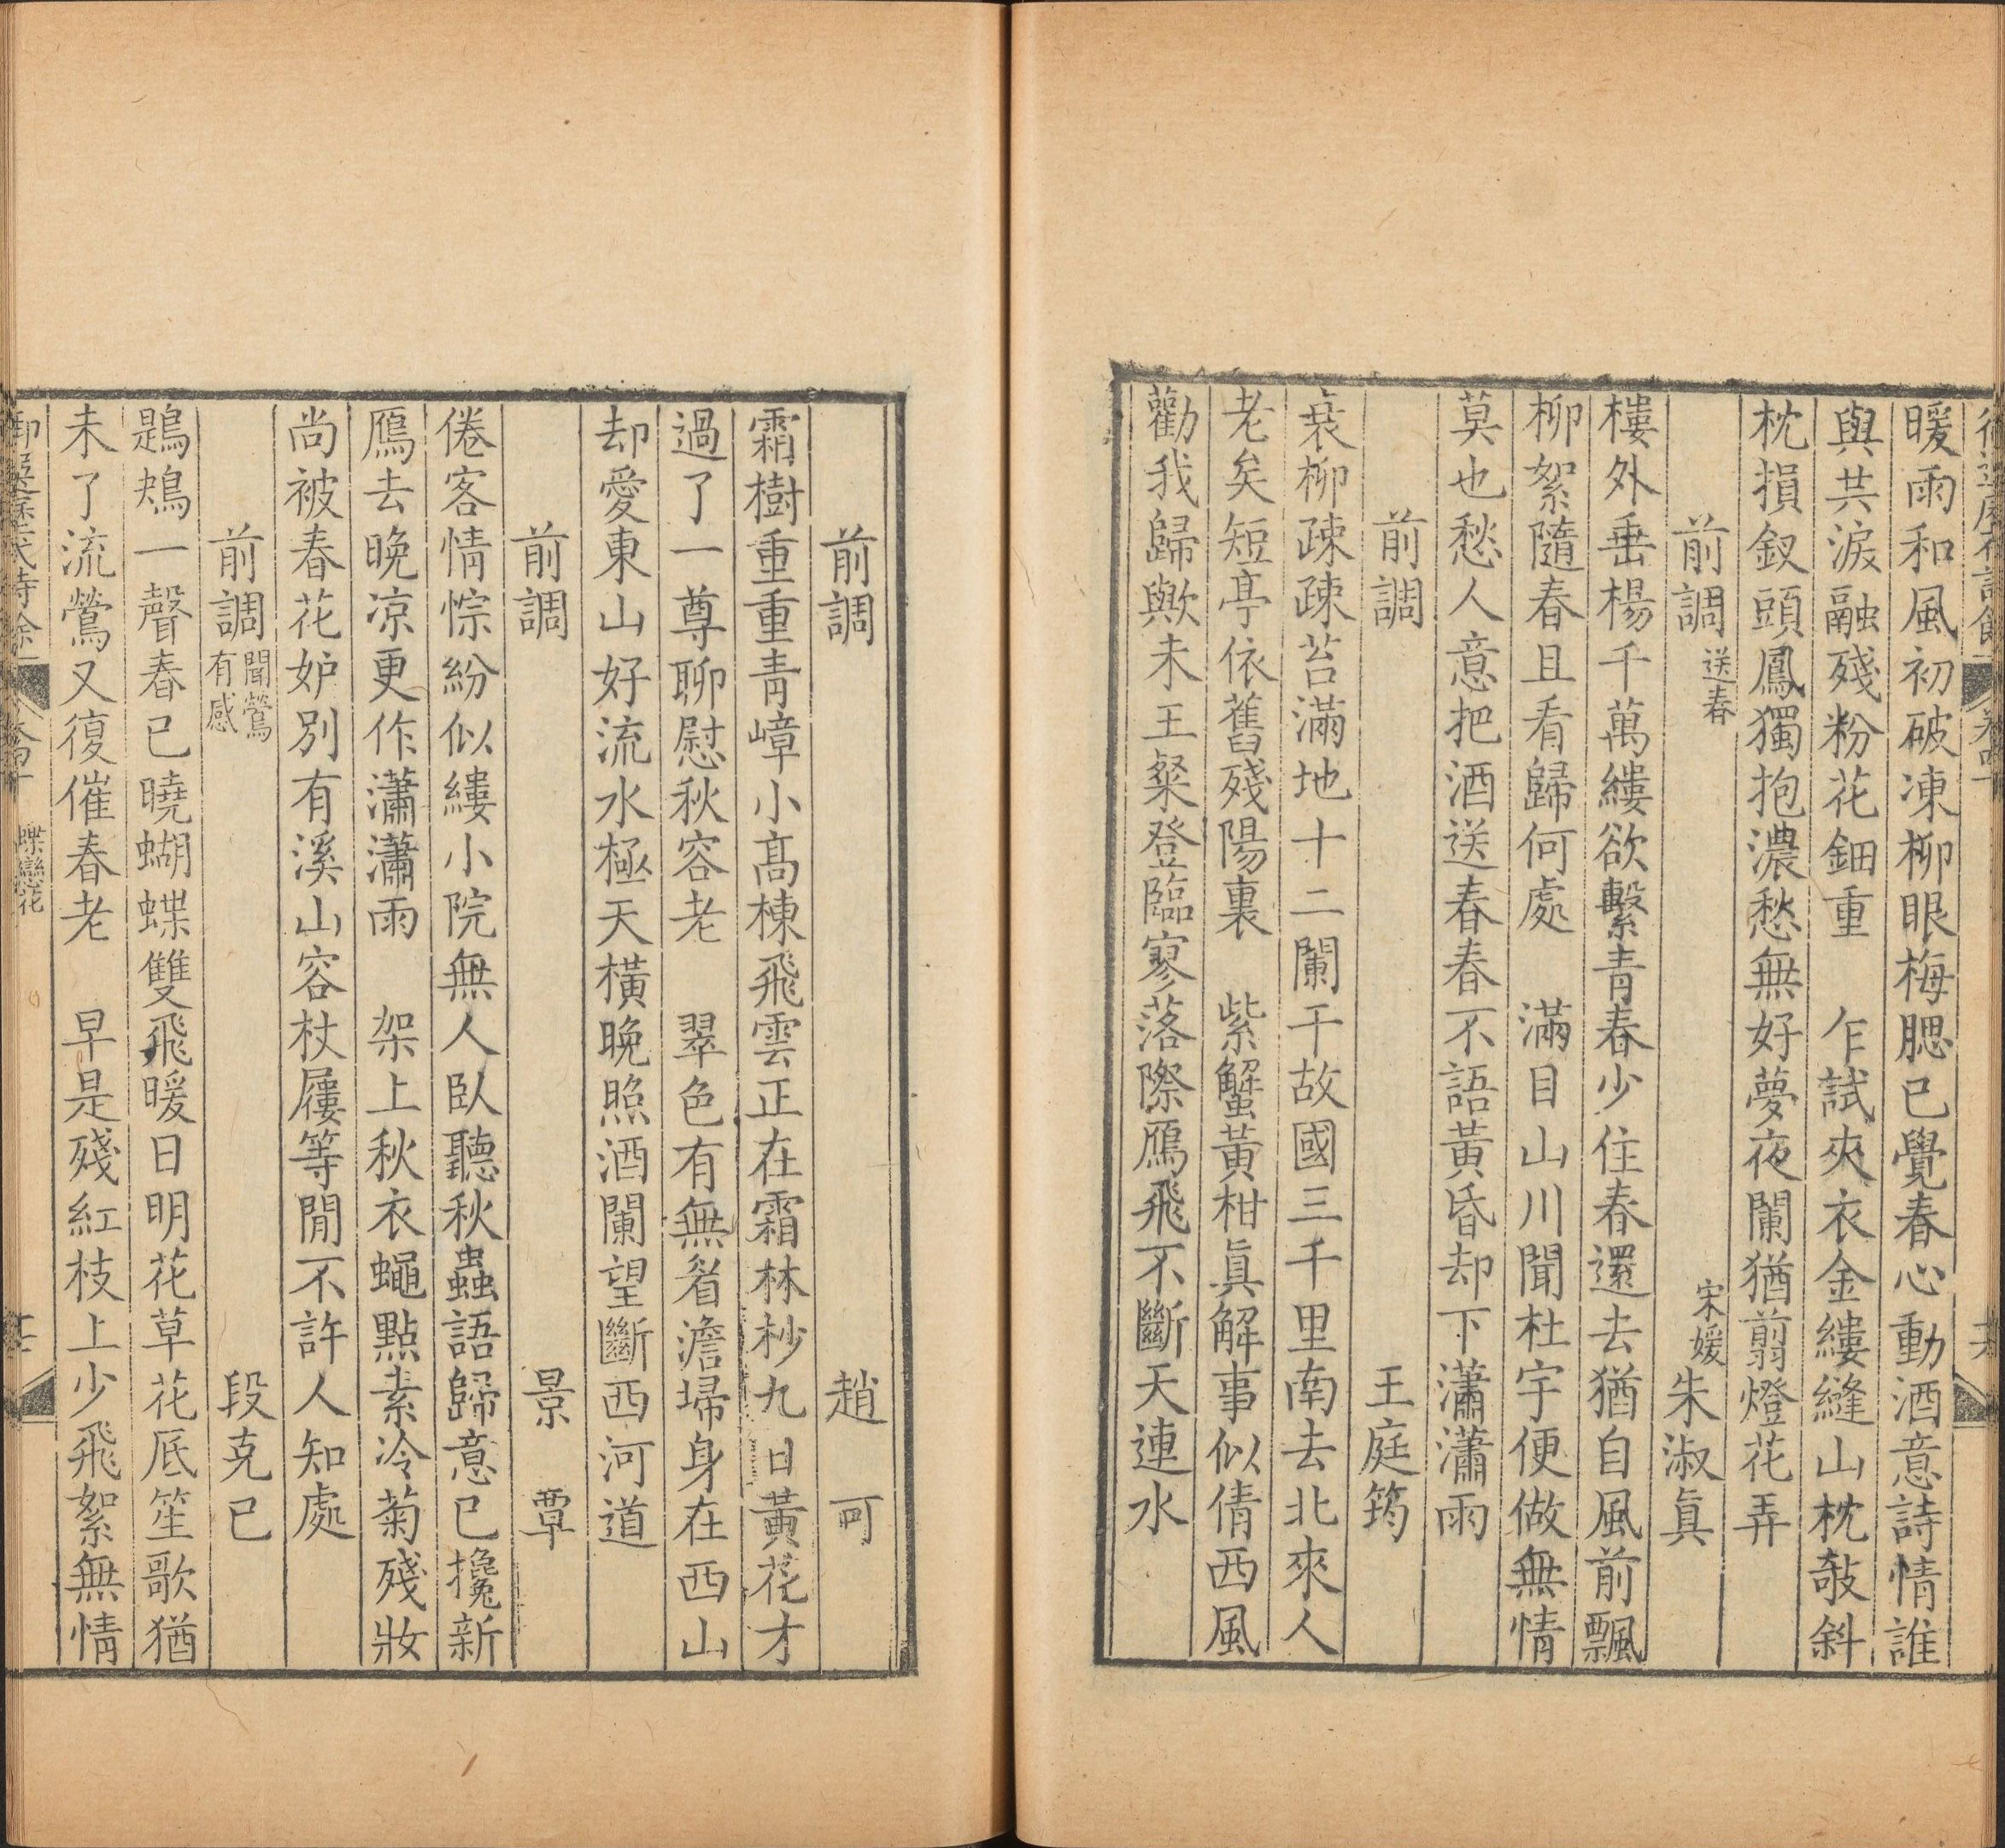 暖雨和風初破凍柳眼梅腮已覺春心動酒意詩情誰
與共淚融殘粉花鈿重　乍試夾衣金縷縫山枕敧斜
枕損釵頭鳳獨抱濃愁無好夢夜闌猶翦燈花弄
前調送春　宋媛朱淑眞
樓外垂楊千萬縷欲繫青春少住春還去猶自風前飄
柳絮隨春且看歸何處　滿目山川聞杜宇便做無情
莫也愁人意把酒送春春不語黃昏却下瀟瀟雨
前調　王庭筠
衰柳疎疎苔滿地十二闌干故國三千里南去北來人
老矣短亭依舊殘陽裏　紫蟹黃柑眞解事似倩西風
勸我歸歟未王粲登臨寥落際鴈飛不斷天連水
前調　趙可
霜樹重重青嶂小髙棟飛雲正在霜林杪九日黃花才
過了一尊聊慰秋容老　翠色有無眉澹埽身在西山
却愛東山好流水極天橫晚照酒闌望斷西河道
前調　景覃
倦客情悰紛似縷小院無人臥聽秋蟲語歸意已攙新
鴈去晚凉更作瀟瀟雨　架上秋衣蠅點素冷菊殘妝
尚被春花妒別有溪山容杖屨等閒不許人知處
前調聞鶯有感　段克已
鶗鴂一聲春已曉蝴蝶雙飛暖日明花草花底笙歌猶
未了流鶯又復催春老　早是殘紅枝上少飛絮無情
蝶戀花